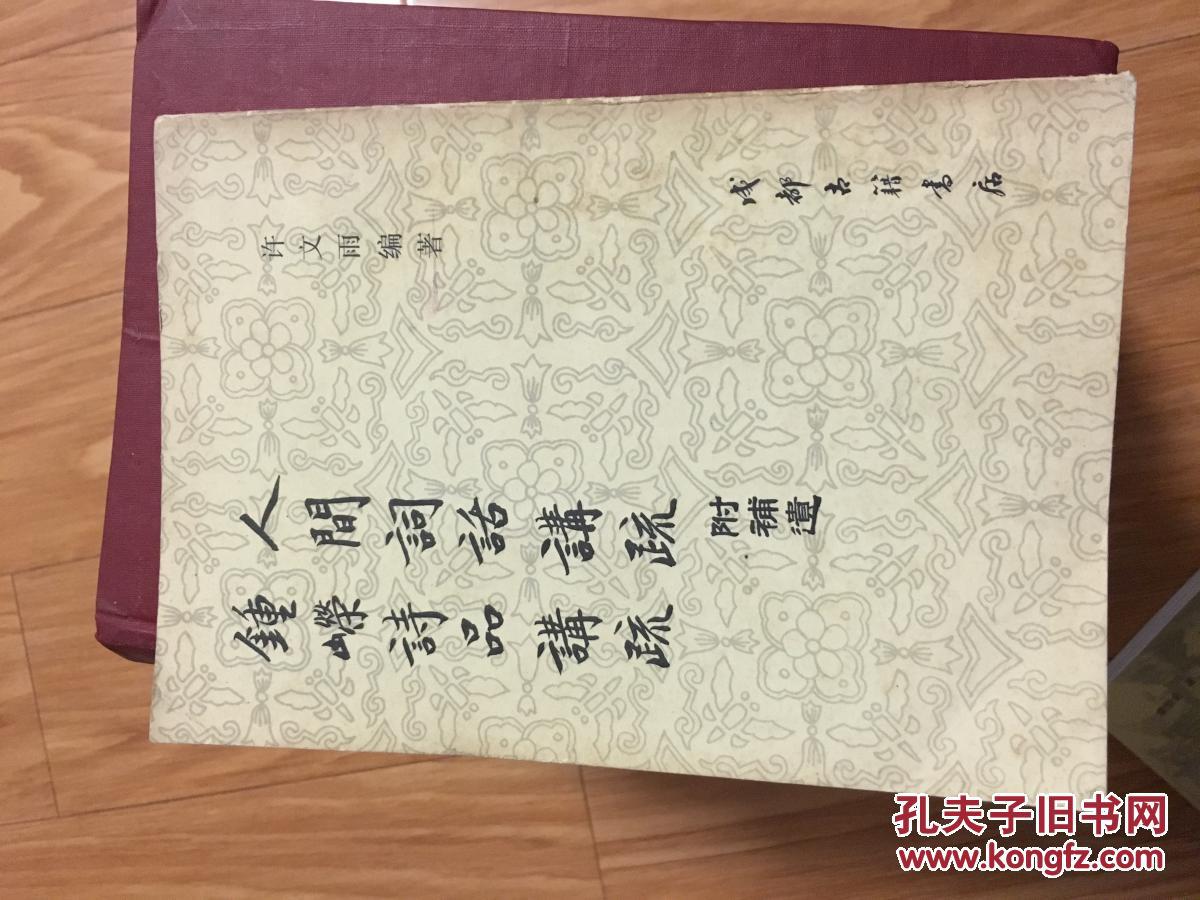 鍾嶸詩品講疏
人間詞話講疏 附補遺
许文雨编著
成都古籍書店
孔夫子旧书网
www.kongfz.com